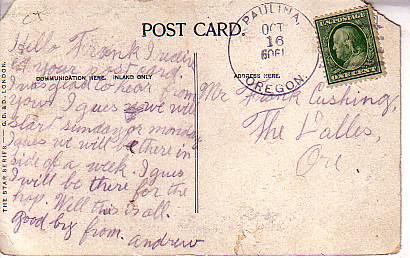 POST CARD.
PAULINA,
OCT
16
OREGON.
U.S. POSTAGE
ONE CENT
COMMUNICATION HERE. INLAND ONLY
ADDRESS HERE.
THE STAR SERIES — G.D.&D., LONDON.
Hello Frank I
got your post card.
I was glad to hear from
you. I gues we will
start sunday or monday
I gues we will be there in
side of a week. I gues
I will be there for the
hop. Well this is all.
good by from. andrew
Mr Frank Cushing,
The Dalles,
Ore.